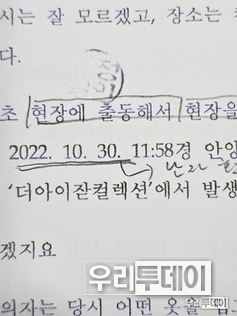 시는 잘 모르겠고, 장소는
다.
초 현장에 출동해서 현장을
2022. 10. 30. 11:58경 안양
난리
'더아이잗컬렉션'에서 발생
겠지요
우리투데이
의자는 당시 어떤 옷을 입
우리투데이